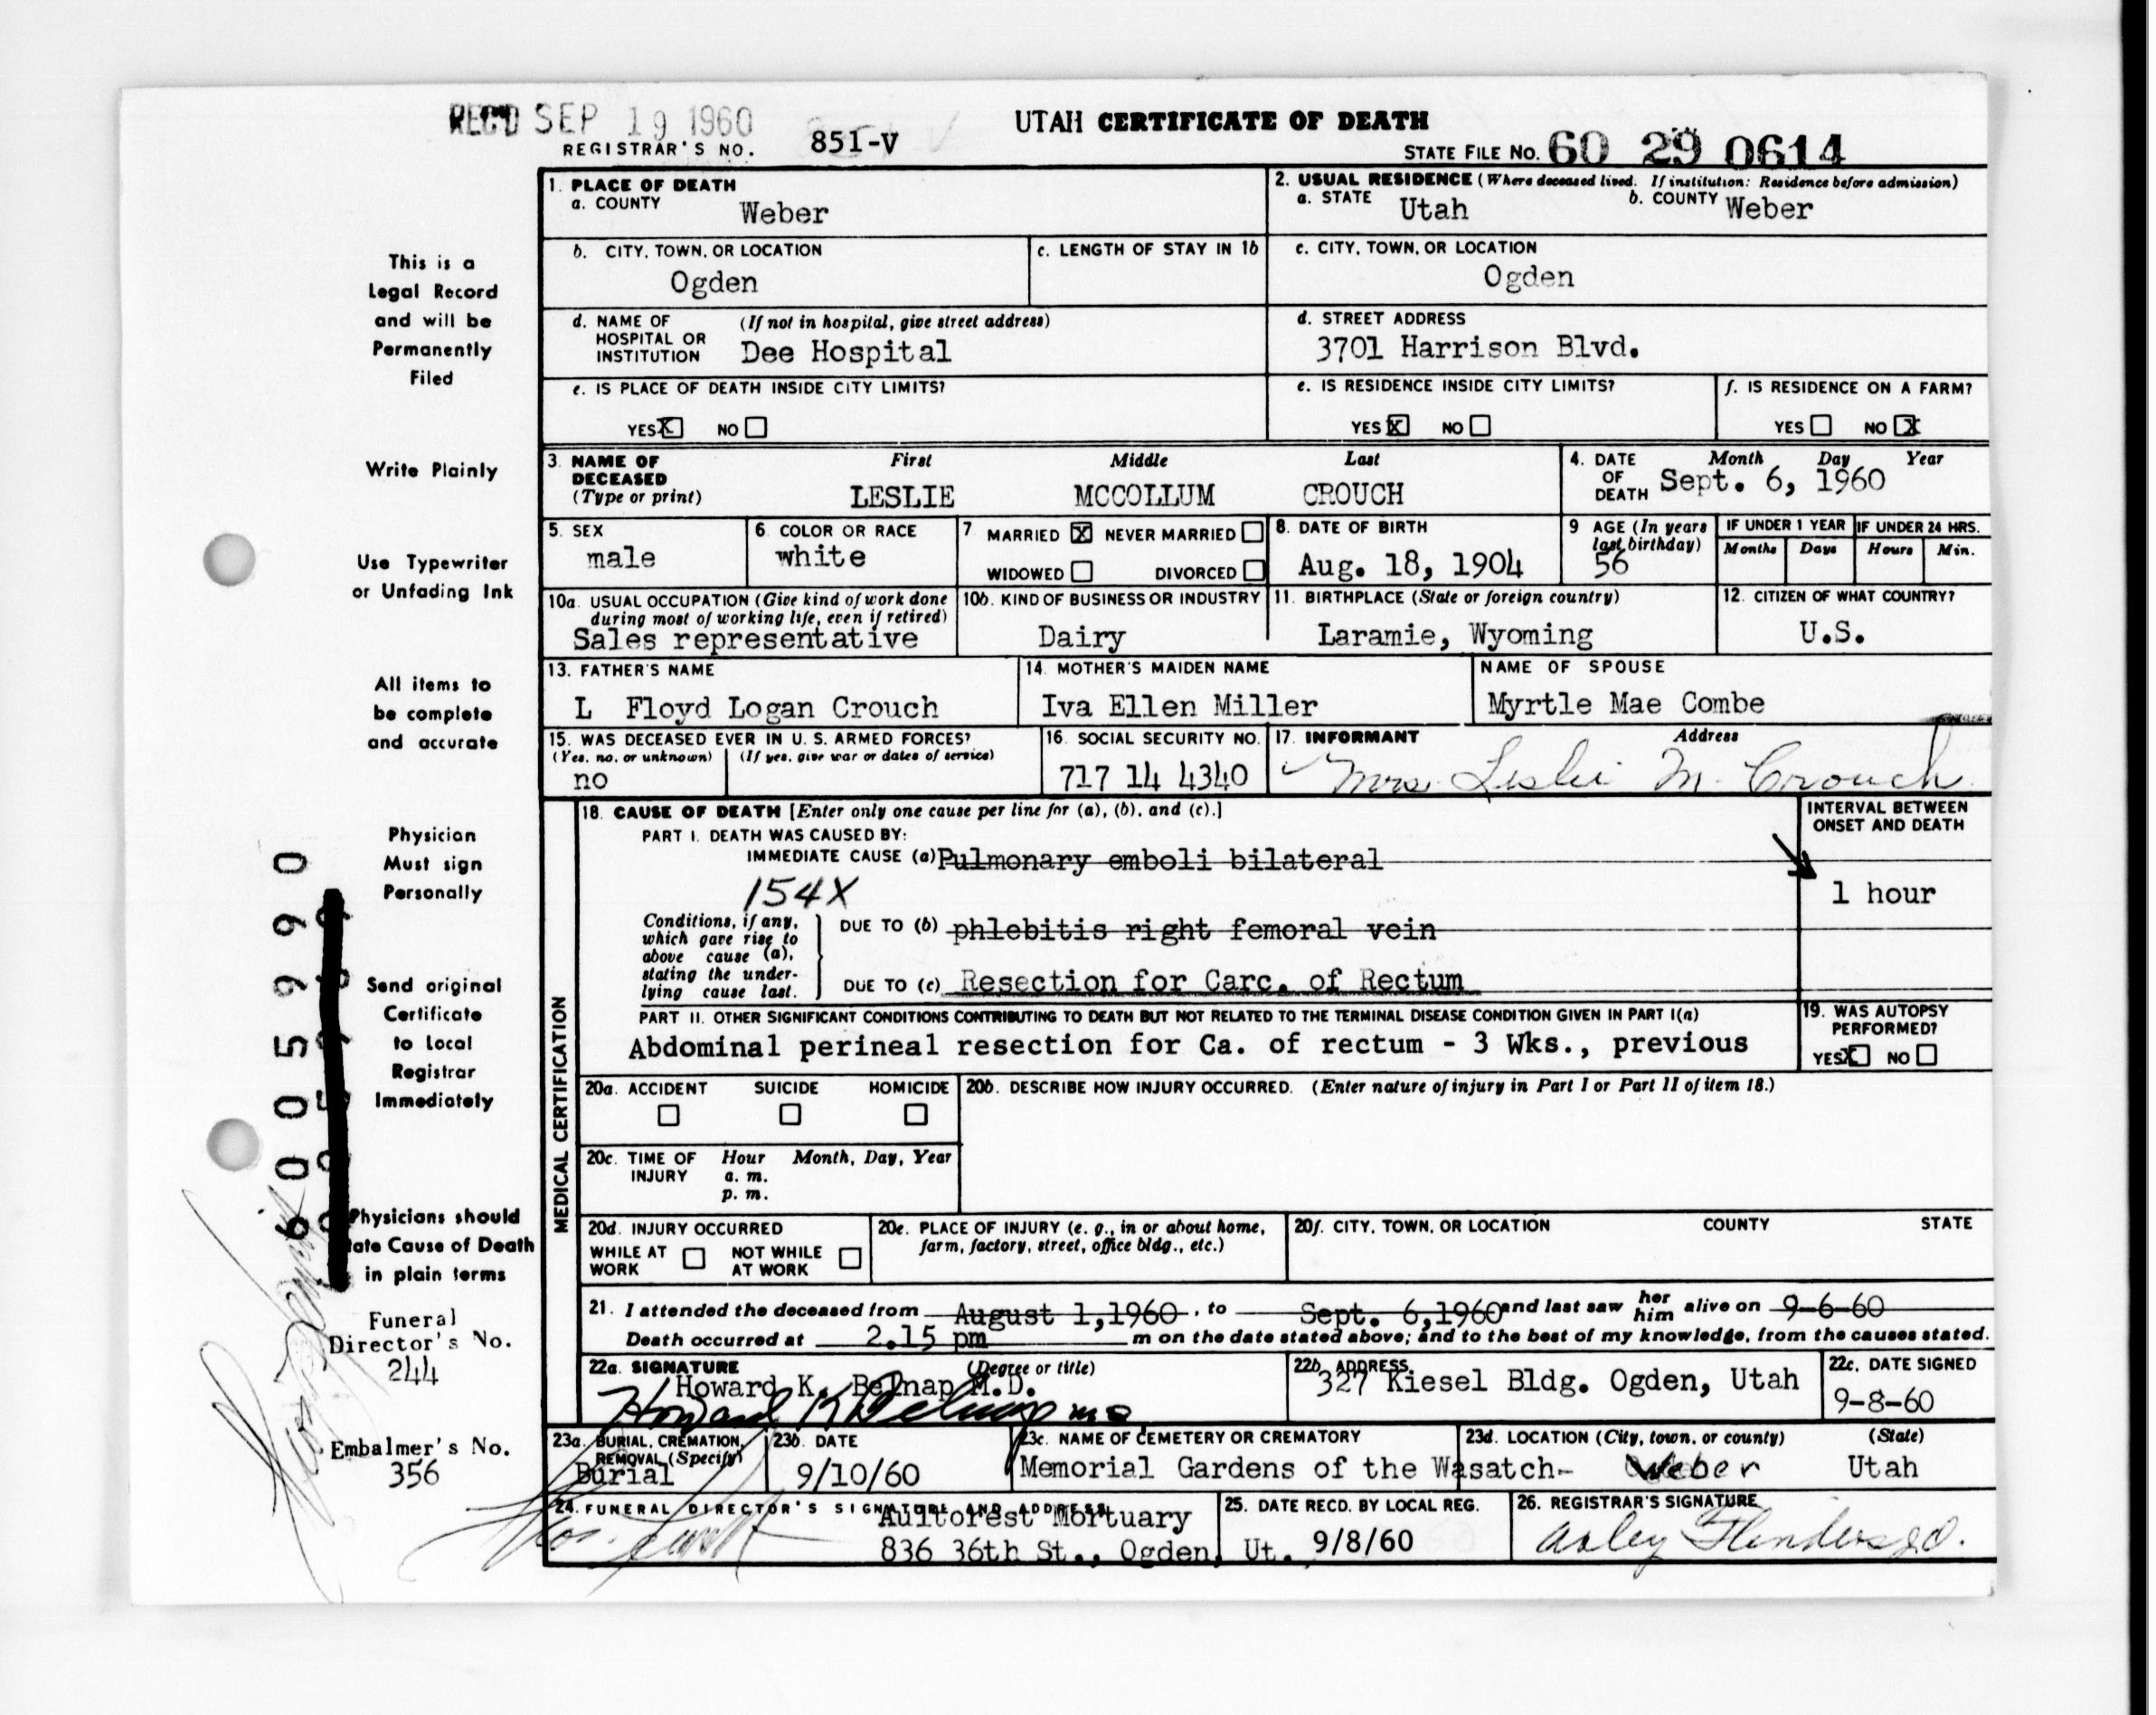 REC'D SEP 19 1960
UTAH CERTIFICATE OF DEATH
REGISTRAR'S NO. 851-V
STATE FILE NO. 60 29 0614
This is a
Legal Record
and will be
Permanently
Filed
Write Plainly
Use Typewriter
or Unfading Ink
All items to
be complete
and accurate
Physician
Must sign
Personally
Send original
Certificate
to Local
Registrar
Immediately
Physicians should
ate Cause of Death
in plain terms
Funeral
Director's No.
244
Embalmer's No.
356
6005990
1. PLACE OF DEATH
a. COUNTY Weber
2. USUAL RESIDENCE (Where deceased lived. If institution: Residence before admission)
a. STATE Utah b. COUNTY Weber
b. CITY, TOWN, OR LOCATION
Ogden
c. LENGTH OF STAY IN 1b
c. CITY, TOWN, OR LOCATION
Ogden
d. NAME OF (If not in hospital, give street address)
HOSPITAL OR
INSTITUTION Dee Hospital
d. STREET ADDRESS
3701 Harrison Blvd.
e. IS PLACE OF DEATH INSIDE CITY LIMITS?
YES X NO
e. IS RESIDENCE INSIDE CITY LIMITS?
YES X NO
f. IS RESIDENCE ON A FARM?
YES NO X
3. NAME OF DECEASED (Type or print)
First Middle Last
LESLIE MCCOLLUM CROUCH
4. DATE OF DEATH
Month Day Year
Sept. 6, 1960
5. SEX
male
6. COLOR OR RACE
white
7 MARRIED X NEVER MARRIED
WIDOWED DIVORCED
8. DATE OF BIRTH
Aug. 18, 1904
9 AGE (In years
last birthday)
56
IF UNDER 1 YEAR IF UNDER 24 HRS.
Months Days Hours Min.
10a. USUAL OCCUPATION (Give kind of work done
during most of working life, even if retired)
Sales representative
10b. KIND OF BUSINESS OR INDUSTRY
Dairy
11. BIRTHPLACE (State or foreign country)
Laramie, Wyoming
12. CITIZEN OF WHAT COUNTRY?
U.S.
13. FATHER'S NAME
L Floyd Logan Crouch
14. MOTHER'S MAIDEN NAME
Iva Ellen Miller
NAME OF SPOUSE
Myrtle Mae Combe
15. WAS DECEASED EVER IN U. S. ARMED FORCES?
(Yes, no, or unknown) (If yes, give war or dates of service)
no
16. SOCIAL SECURITY NO.
717 14 4340
17. INFORMANT Address
Mrs. Leslie M. Crouch
MEDICAL CERTIFICATION
18. CAUSE OF DEATH [Enter only one cause per line for (a), (b), and (c).]
PART I. DEATH WAS CAUSED BY:
IMMEDIATE CAUSE (a) Pulmonary emboli bilateral
154X
Conditions, if any,
which gave rise to
above cause (a),
stating the under-
lying cause last.
DUE TO (b) phlebitis right femoral vein
DUE TO (c) Resection for Carc. of Rectum
INTERVAL BETWEEN
ONSET AND DEATH
1 hour
PART II. OTHER SIGNIFICANT CONDITIONS CONTRIBUTING TO DEATH BUT NOT RELATED TO THE TERMINAL DISEASE CONDITION GIVEN IN PART I(a)
Abdominal perineal resection for Ca. of rectum - 3 Wks., previous
19. WAS AUTOPSY
PERFORMED?
YES X NO
20a. ACCIDENT SUICIDE HOMICIDE
20b. DESCRIBE HOW INJURY OCCURRED. (Enter nature of injury in Part I or Part II of item 18.)
20c. TIME OF INJURY
Hour Month, Day, Year
a. m.
p. m.
20d. INJURY OCCURRED
WHILE AT WORK NOT WHILE AT WORK
20e. PLACE OF INJURY (e. g., in or about home,
farm, factory, street, office bldg., etc.)
20f. CITY, TOWN, OR LOCATION COUNTY STATE
21. I attended the deceased from August 1,1960, to Sept. 6,1960 and last saw her him alive on 9-6-60
Death occurred at 2.15 pm m on the date stated above; and to the best of my knowledge, from the causes stated.
22a. SIGNATURE (Degree or title)
Howard K. Belnap M.D.
Howard K Belnap MD
22b. ADDRESS
327 Kiesel Bldg. Ogden, Utah
22c. DATE SIGNED
9-8-60
23a. BURIAL, CREMATION,
REMOVAL (Specify)
Burial
23b. DATE
9/10/60
23c. NAME OF CEMETERY OR CREMATORY
Memorial Gardens of the Wasatch-
23d. LOCATION (City, town, or county) (State)
Weber Utah
24. FUNERAL DIRECTOR'S SIGNATURE AND ADDRESS
Aultorest Mortuary
836 36th St., Ogden, Ut.
25. DATE RECD. BY LOCAL REG.
9/8/60
26. REGISTRAR'S SIGNATURE